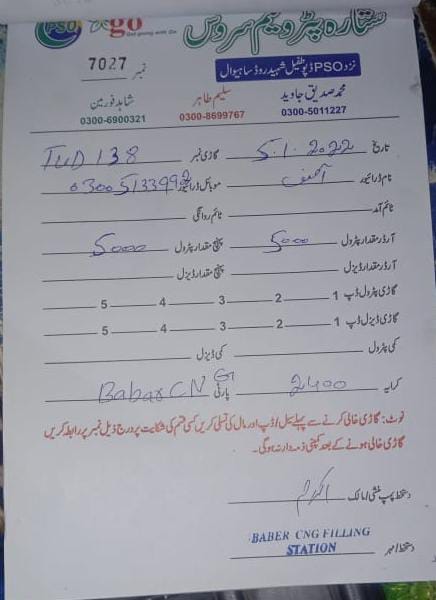 PSO go Getting going with Go ستاره پٹرولیم سروس
نزد PSO ڈپو طفیل شہید روڈ ساہیوال
نمبر 7027
محمد صدیق جاوید سلیم طاہر شاہد فورمین
0300-5011227 0300-8699767 0300-6900321
تاریخ 5.1.2022 گاڑی نمبر TUD 138
نام ڈرائیور آصف موبائل ڈرائیور 03005133992
ٹائم آمد ٹائم روانگی
آرڈر مقدار پٹرول 5000 پہنچ مقدار پٹرول 5000
آرڈر مقدار ڈیزل پہنچ مقدار ڈیزل
گاڑی پٹرول ڈپ 1 2 3 4 5
گاڑی ڈیزل ڈپ 1 2 3 4 5
کمی پٹرول کمی ڈیزل
کرایہ 2400 پارٹی Babar CNG
نوٹ: گاڑی خالی کرنے سے پہلے سیل / ڈپ اور مال کی تسلی کریں کسی قسم کی شکایت پر درج ذیل نمبر پر رابطہ کریں
گاڑی خالی ہونے کے بعد کمپنی ذمہ دار نہ ہوگی۔
دستخط پمپ منشی / مالک اکرم
BABER CNG FILLING
STATION
دستخط / مہر